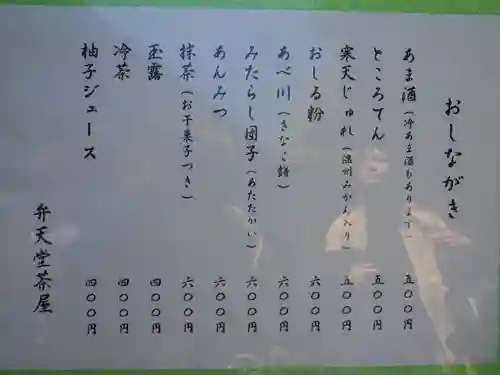 おしながき
あま酒（冷あま酒もあります） 五〇〇円
ところてん 五〇〇円
寒天じゅれ（遠州みかん入り） 五〇〇円
おしる粉 六〇〇円
あべ川（きなこ餅） 六〇〇円
みたらし団子（あたたかい） 六〇〇円
あんみつ 六〇〇円
抹茶（お干菓子つき） 六〇〇円
玉露 四〇〇円
冷茶 四〇〇円
柚子ジュース 四〇〇円
弁天堂茶屋